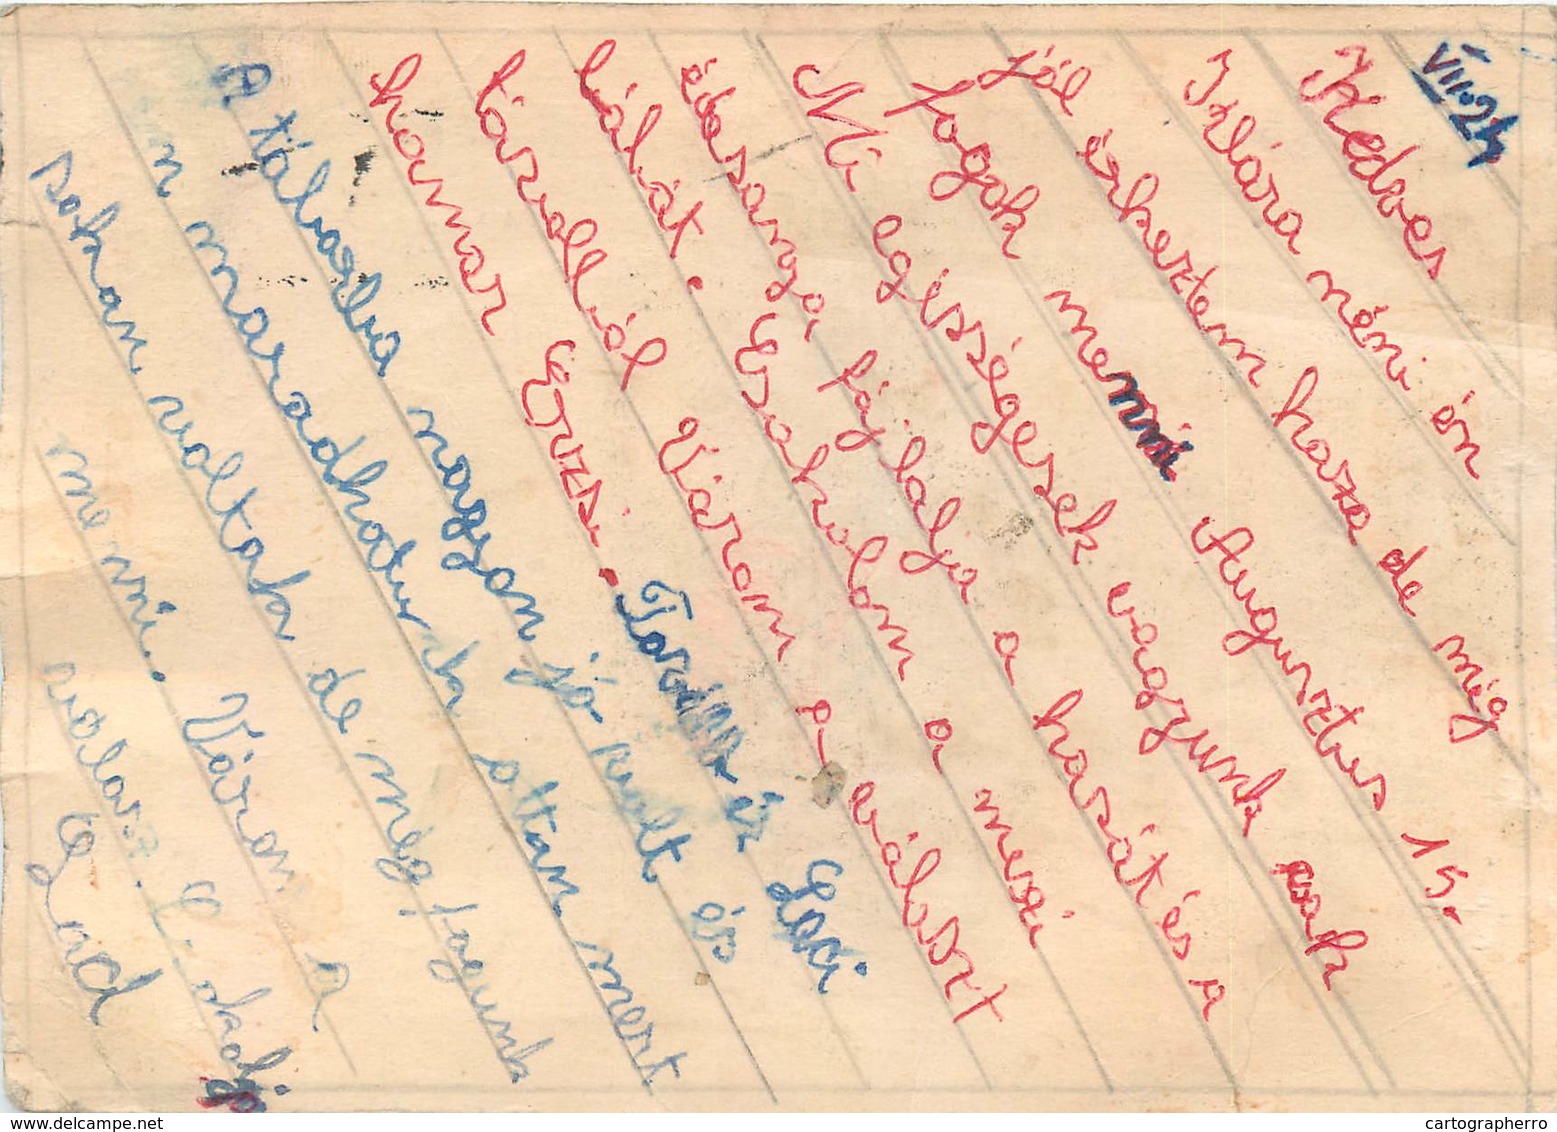 VII. 24
Kedves
Klára néni én
jól érkeztem haza de még
fogok menni Augusztus 15.
Mi egésségesek vagyunk csak
édesanya fájlalja a hasát és a
hátát. Csakolom a
távolból Várom a választ
hamar Erzsi. és Laci
A táborba nagyon jó volt és
n maradhatunk ottan mert
sokan voltak de még fogunk
menni. Várom a
válasz.
cartographerro